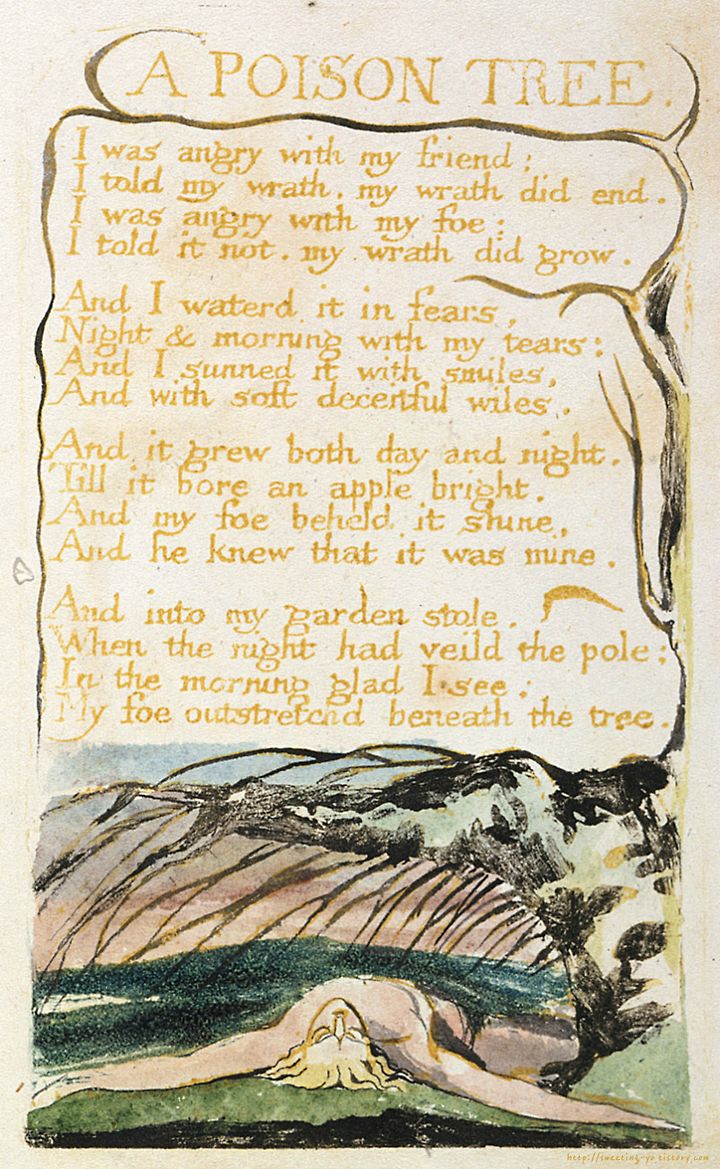 A POISON TREE.
I was angry with my friend;
I told my wrath, my wrath did end.
I was angry with my foe:
I told it not, my wrath did grow.
And I waterd it in fears,
Night & morning with my tears:
And I sunned it with smiles,
And with soft deceitful wiles.
And it grew both day and night.
Till it bore an apple bright.
And my foe beheld it shine,
And he knew that it was mine.
And into my garden stole.
When the night had veild the pole;
In the morning glad I see;
My foe outstretchd beneath the tree.
http://sweeting-yo.tistory.com